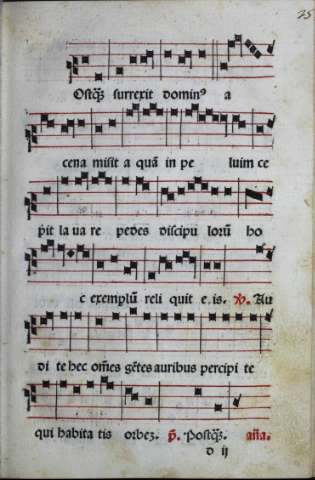 25
Ostqȝ surrexit dominꝰ a
cena misit a quā in pe luim ce
pit la ua re pedes discipu lorū ho
c exemplū reli quit e.is. ℣. Au
di te hec om̄es gētes auribus percipi te
qui habita tis orbeȝ. p̄. Postqȝ. añа.
d ij